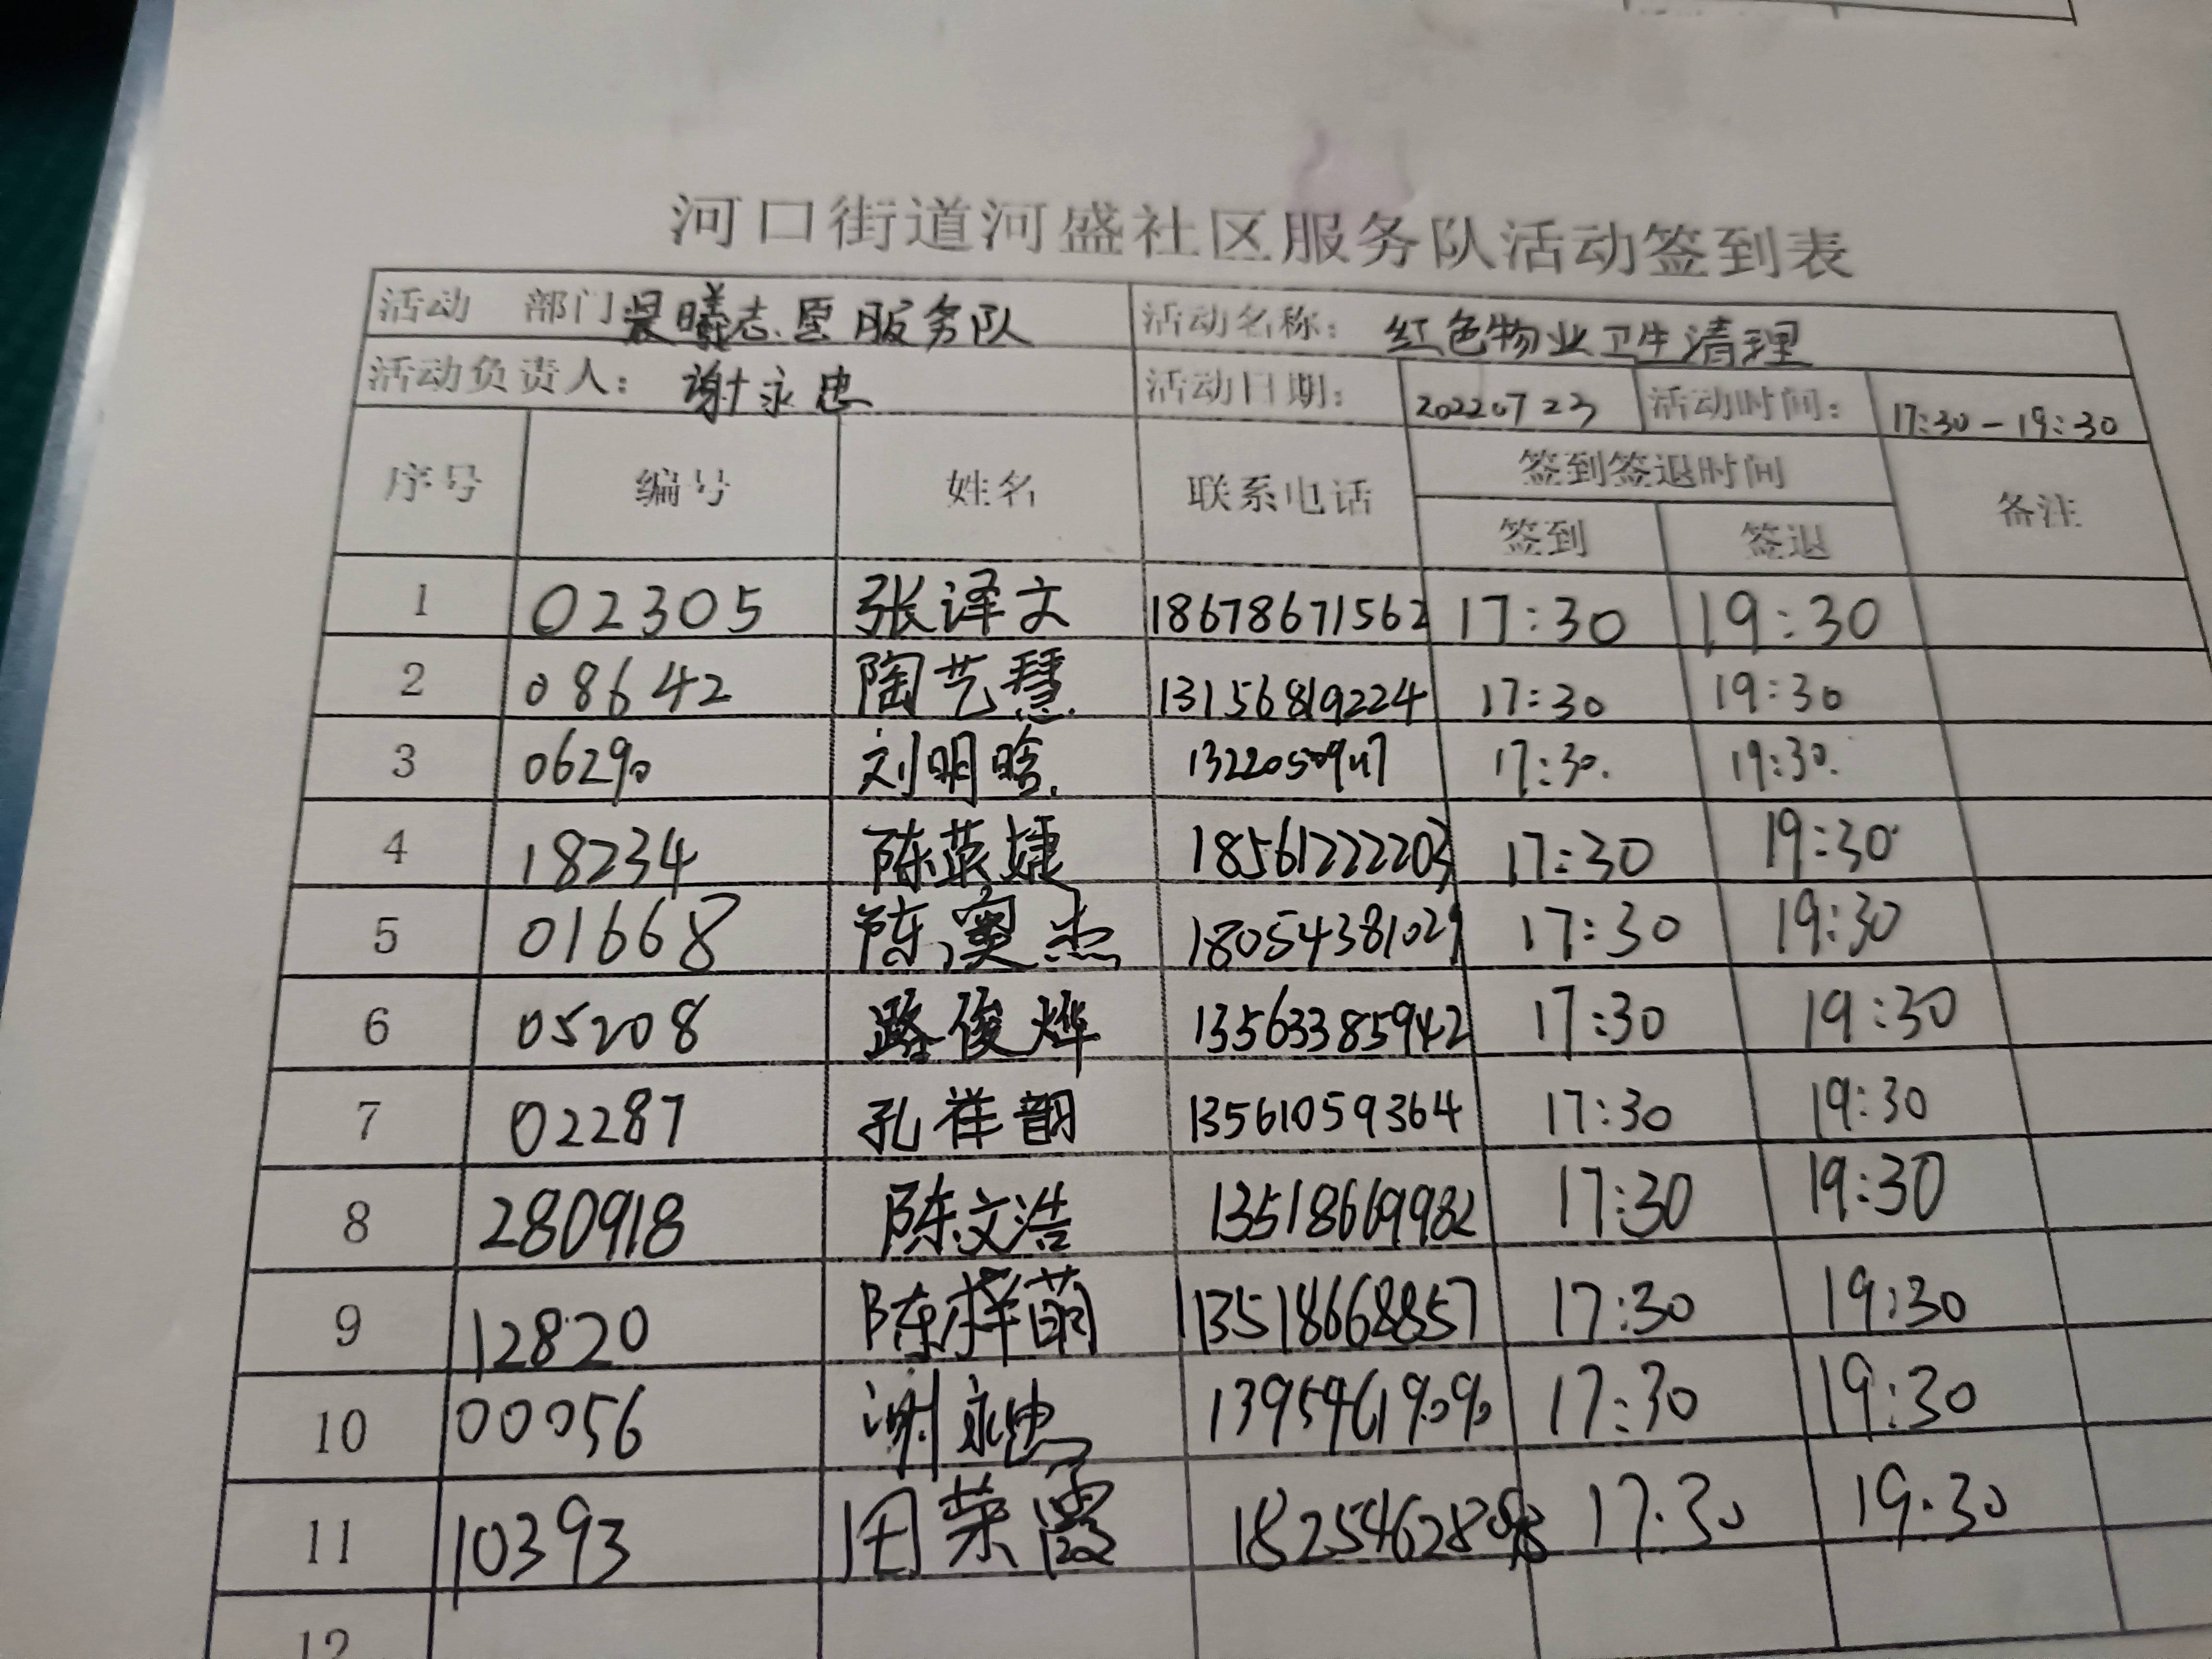 河口街道河盛社区服务队活动签到表
活动 部门 晨曦志愿服务队 活动名称： 红色物业卫生清理
活动负责人： 谢永忠 活动日期： 20220723 活动时间： 17:30-19:30
序号 编号 姓名 联系电话 签到签退时间 备注
签到 签退
1 02305 张译文 18678671562 17:30 19:30
2 08642 陶艺慧 13156819224 17:30 19:30
3 06290 刘明晗 17:30 19:30
4 18234 陈英婕 18561222203 17:30 19:30
5 01668 陈奕杰 18054381029 17:30 19:30
6 05208 路俊烨 13563385942 17:30 19:30
7 02287 孔祥韵 13561059364 17:30 19:30
8 280918 陈文浩 13518669982 17:30 19:30
9 12820 陈梓萌 13518668857 17:30 19:30
10 00056 谢永忠 17:30 19:30
11 10393 田荣霞 17:30 19:30
12